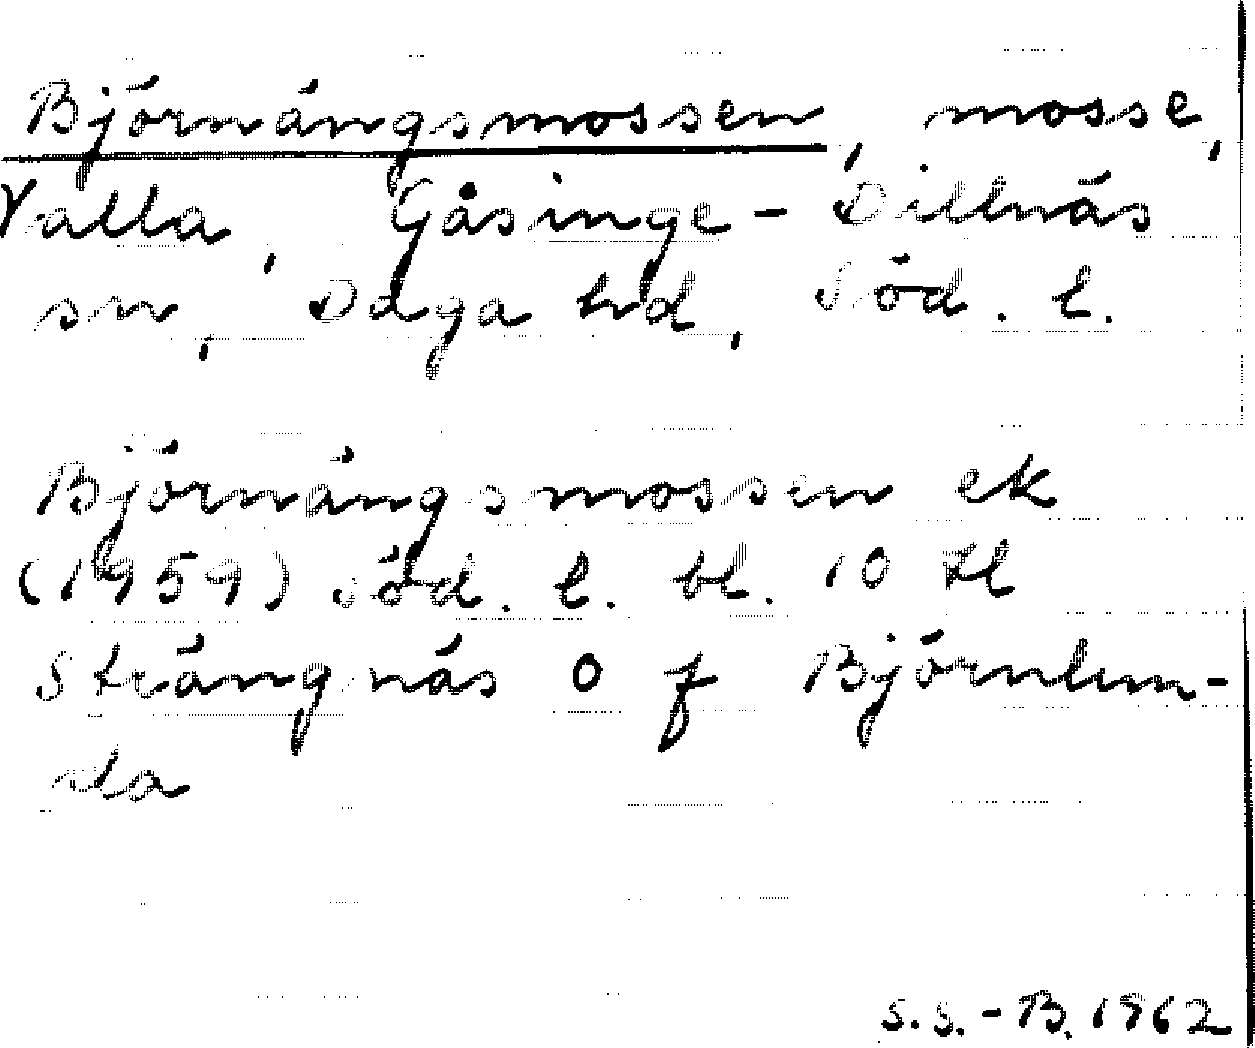 Björnängsmossen, mosse,
Valla, Gåsinge-Dillnäs
sn, Daga hd, Söd. l.
Björnängsmossen ek
(1959) Söd. l. bl. 10 Fl
Strängnäs O f Björnlun-
da
S.S.-B. 1962